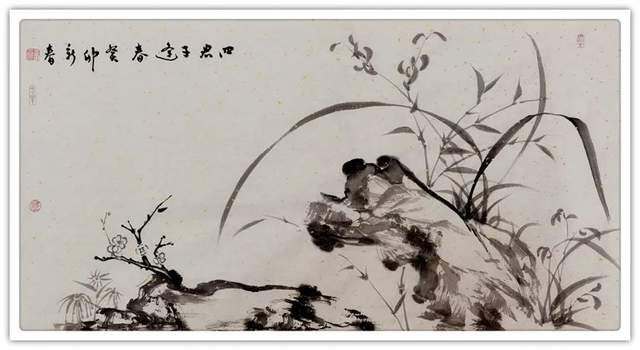 四君子迎春癸卯新春